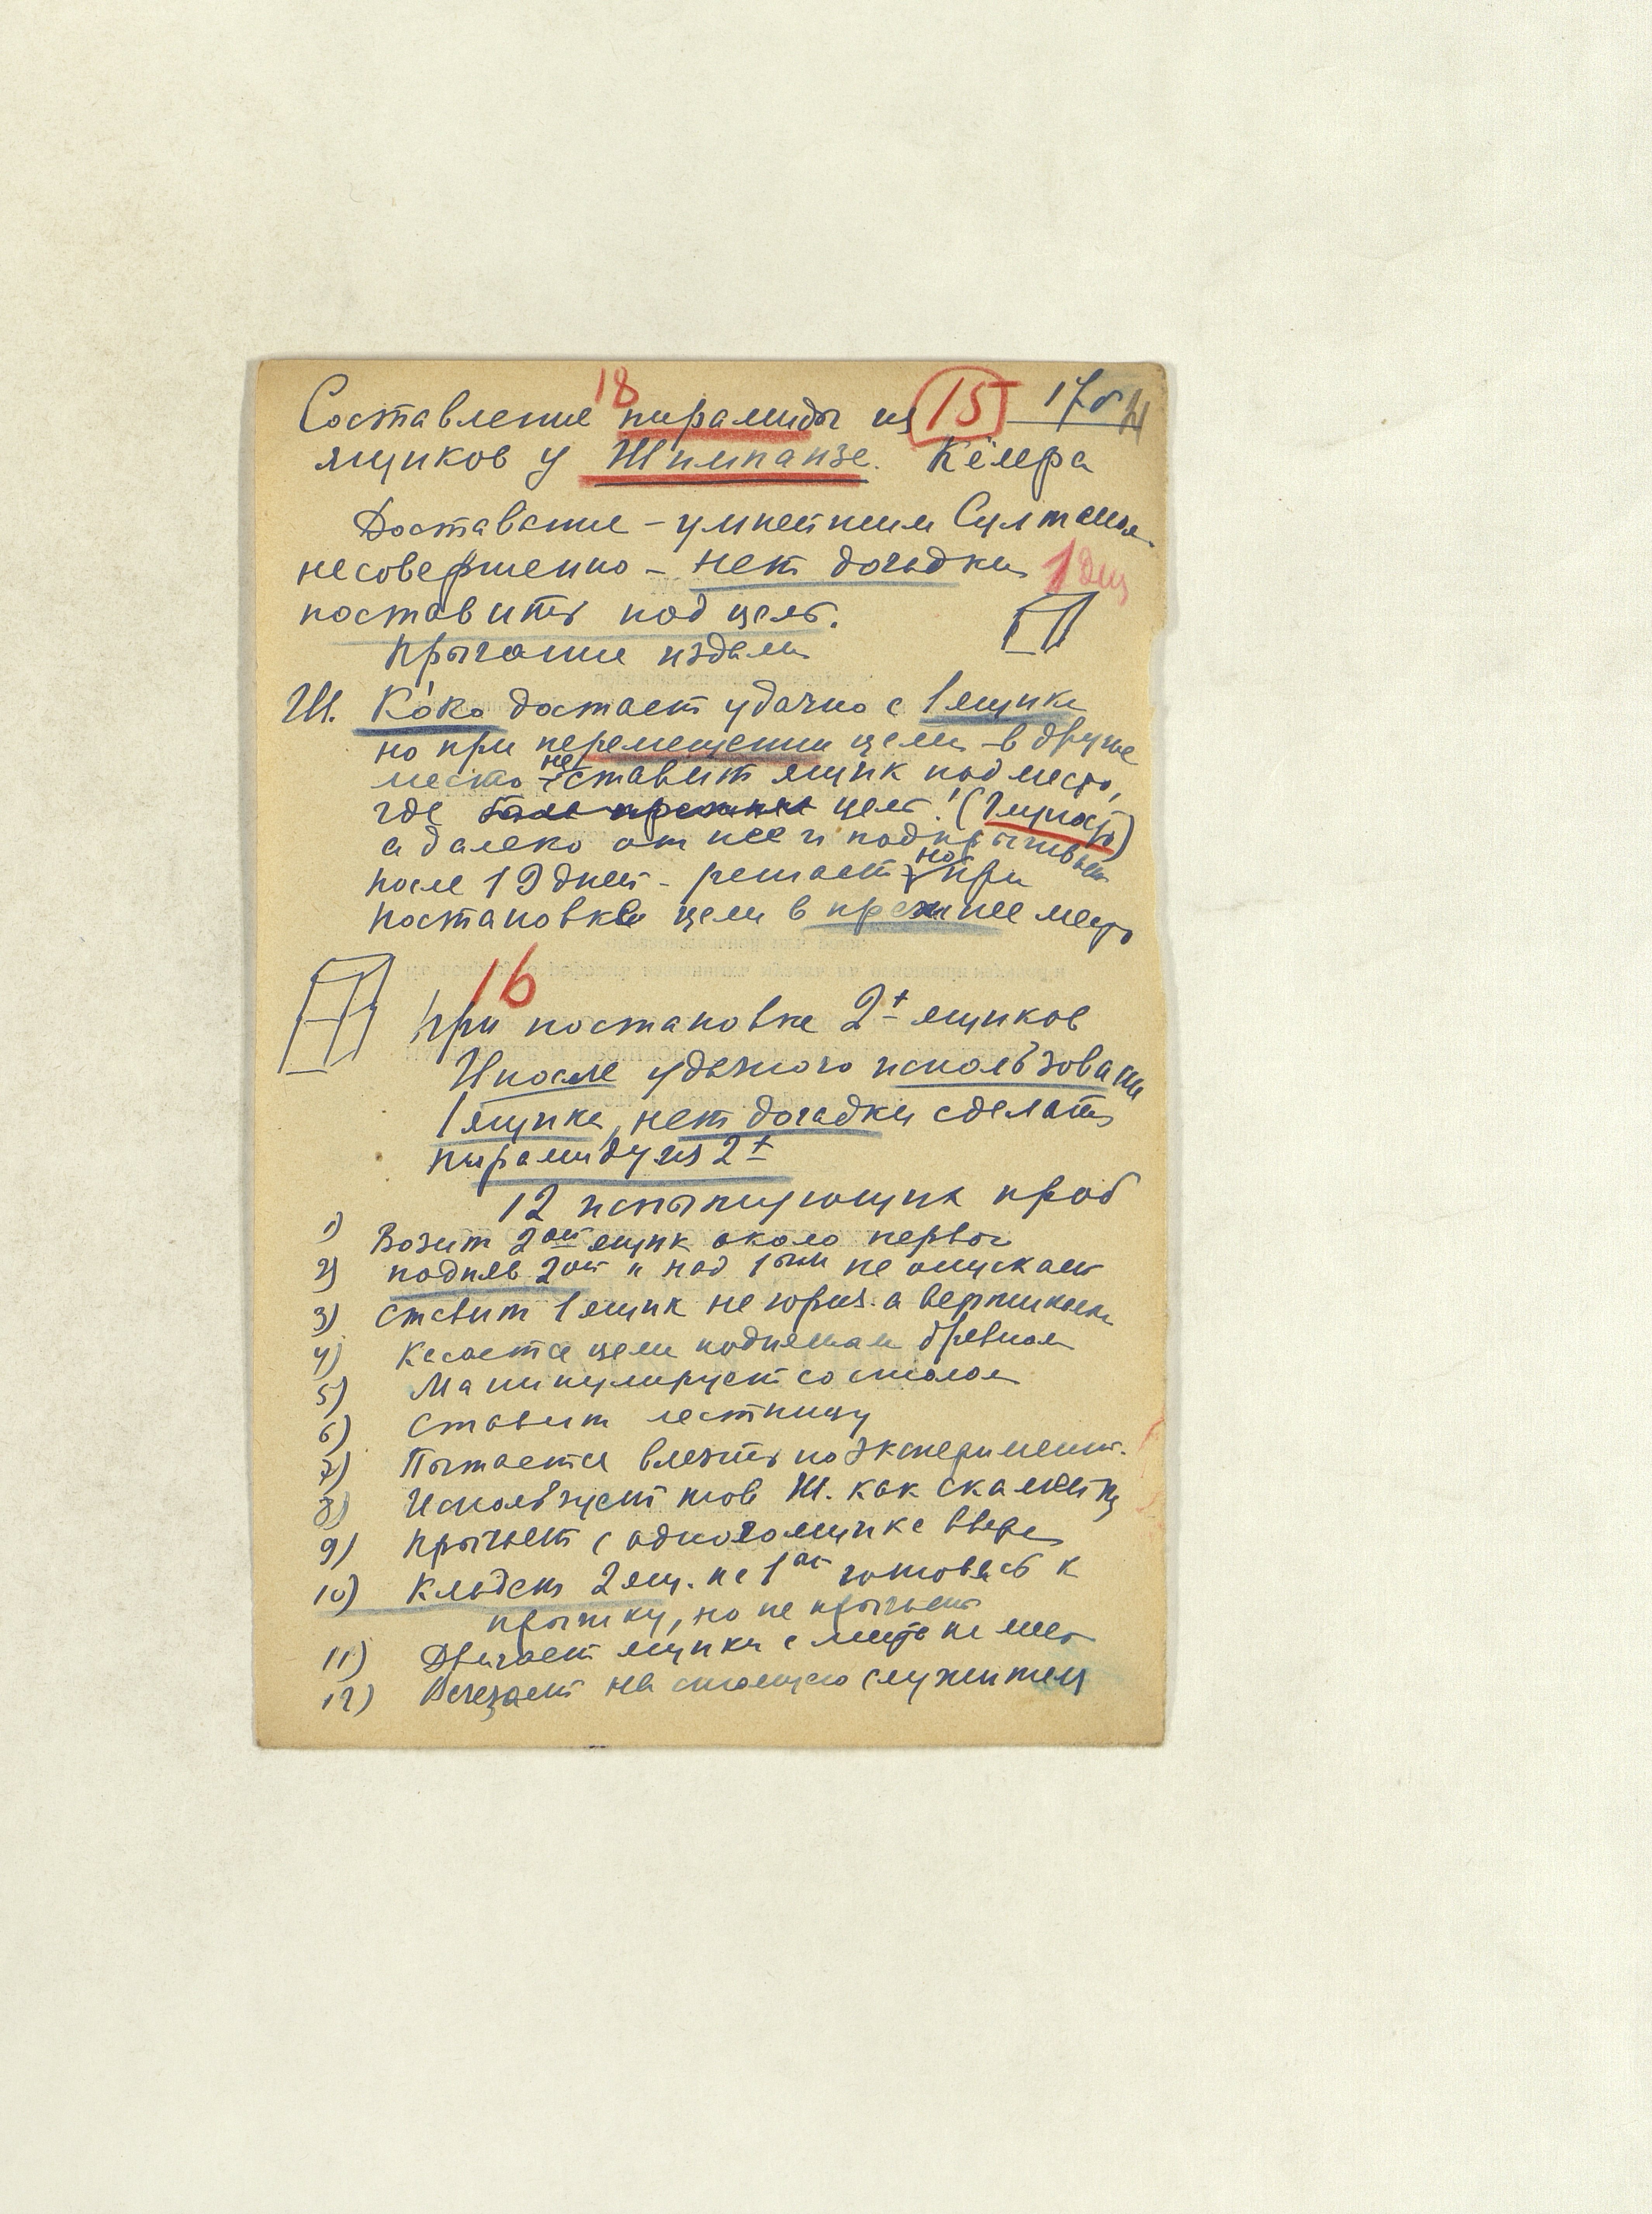 18 15 17б
Составление пирамиды из
ящиков у Шимпанзе. Кёлера
Доставание – умнейшим Султаном
несовершенно – нет догадки 1 ящ
поставить под цель.
Прыгание издали
Ш. Ко́ко достает удачно с 1 ящика
но при перемещении цели в другое
место не ставит ящик под место,
где цель! (
а далеко от нее и подпрыгивает
после 19 дней – решает но при
постановке цели в прежнее место
16
При постановке 2х ящиков
И после удачного использования
1 ящика, нет догадки сделать
пирамиду из 2х
12 проб
1) Возит 2ой ящик около первого
2) подняв 2ой " над 1ым не опускает
3) ставит 1 ящик не гориз. а вертикально
4) Касается цели поднятым бревном
5) Манипулирует со столом
6) Ставит лестницу
7) Пытается влезть по эксперимент.
8) Использует тов Ш. как скамейку
9) Прыгает с одного ящика вверх
10) Кладет 2 ящ. на 1ый готовясь к
прыжку, но не прыгает
11) Двигает ящики с места на место
12) Влезает на стоящего служителя